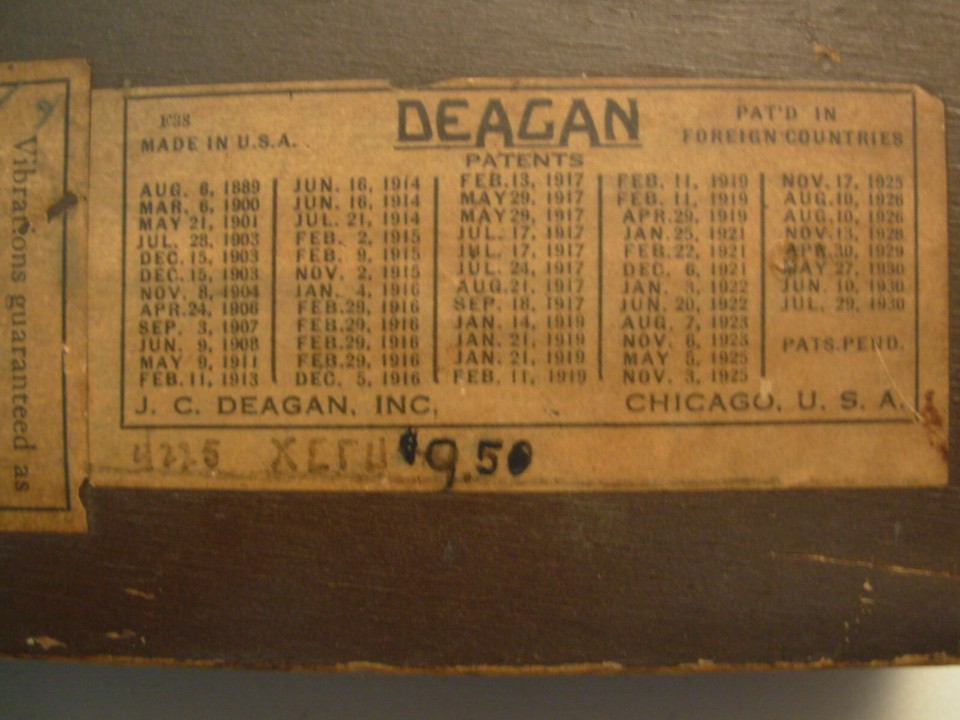 Vibrations guaranteed as
F38
MADE IN U.S.A.
DEAGAN
PATENTS
PAT'D IN
FOREIGN COUNTRIES
AUG. 6, 1889
MAR. 6, 1900
MAY 21, 1901
JUL. 28, 1903
DEC. 15, 1903
DEC. 15, 1903
NOV. 8, 1904
APR.24, 1906
SEP. 3, 1907
JUN. 9, 1908
MAY 9, 1911
FEB. 11, 1913
JUN. 16, 1914
JUN. 16, 1914
JUL. 21, 1914
FEB. 2, 1915
FEB. 9, 1915
NOV. 2, 1915
JAN. 4, 1916
FEB.29, 1916
FEB.29, 1916
FEB.29, 1916
FEB.29, 1916
DEC. 5, 1916
FEB.13, 1917
MAY 29, 1917
MAY 29, 1917
JUL. 17, 1917
JUL. 17, 1917
JUL. 24, 1917
AUG.21, 1917
SEP. 18, 1917
JAN. 14, 1919
JAN. 21, 1919
JAN. 21, 1919
FEB. 11, 1919
FEB. 11, 1919
FEB. 11, 1919
APR.29, 1919
JAN.25, 1921
FEB.22, 1921
DEC. 6, 1921
JAN. 3, 1922
JUN. 20, 1922
AUG. 7, 1923
NOV. 6, 1923
MAY 5, 1925
NOV. 3, 1925
NOV. 17, 1925
AUG.10, 1926
AUG.10, 1926
NOV.13, 1928
APR.30, 1929
MAY 27, 1930
JUN. 10, 1930
JUL. 29, 1930
PATS.PEND.
J. C. DEAGAN, INC,
CHICAGO, U. S. A.
4225 $9.50